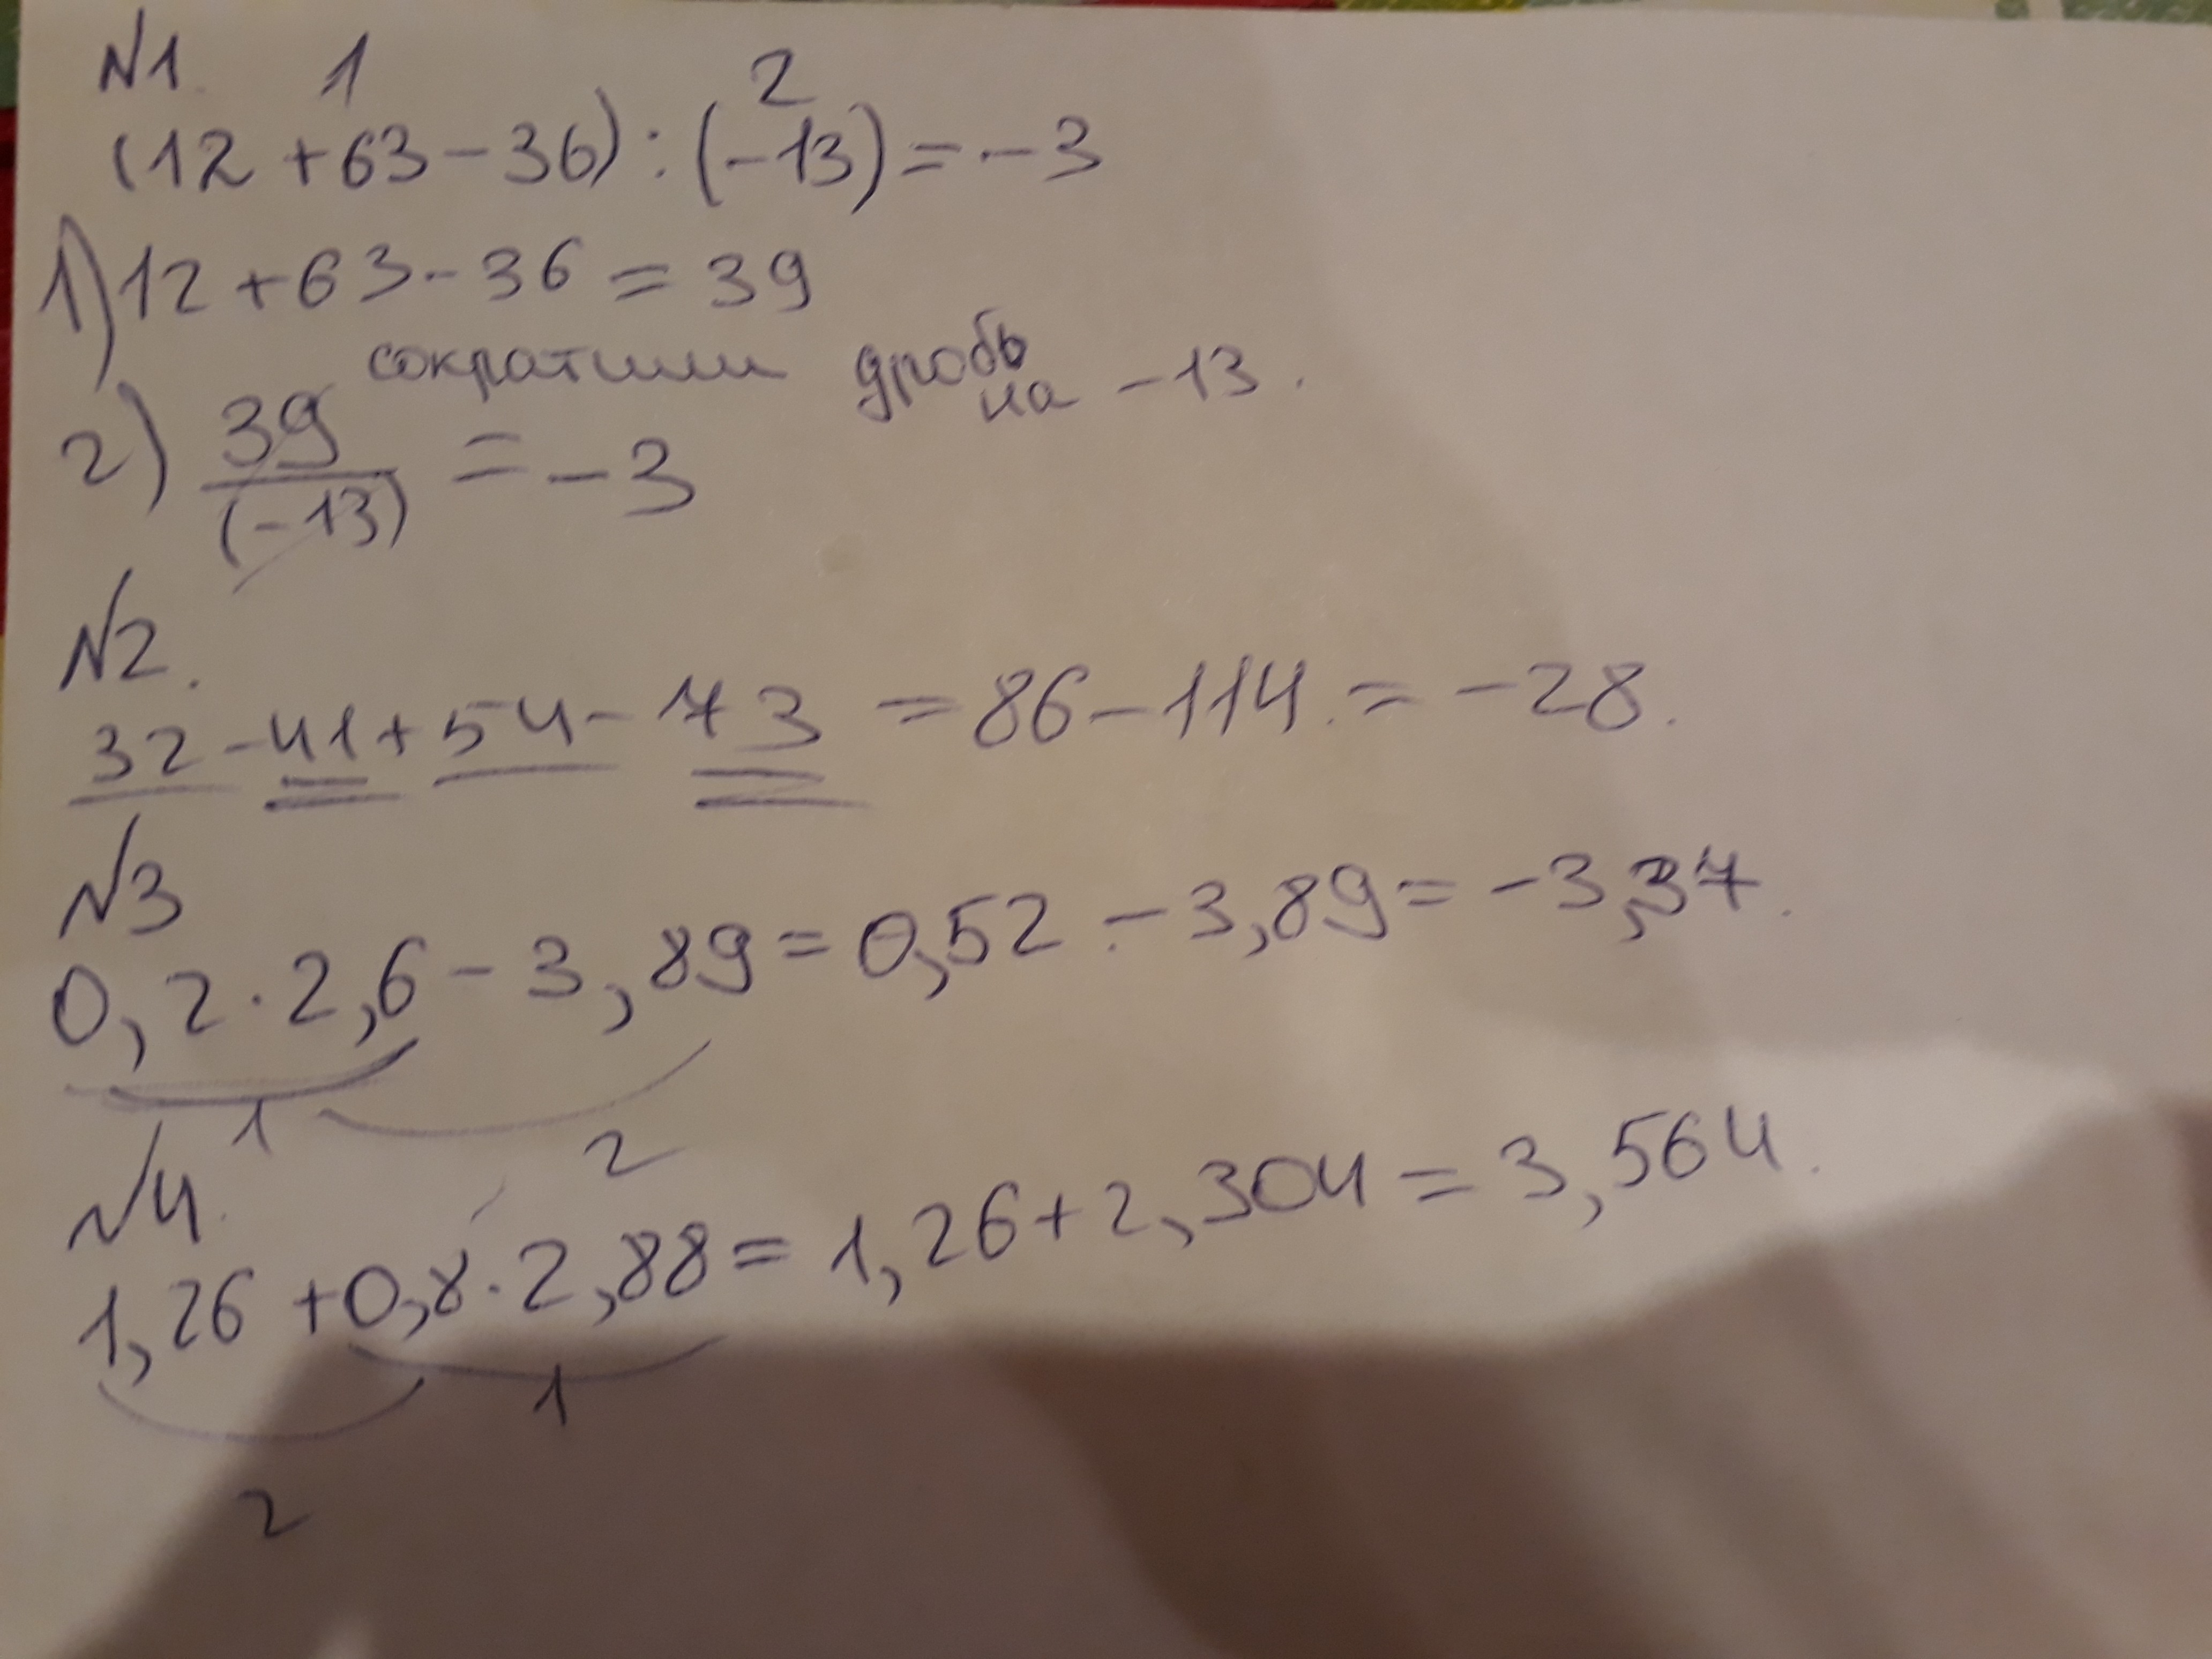 №1. 1 2
(12+63-36):(-13)=-3
1) 12+63-36=39
сократили дробь
на -13.
2) 39/(-13) = -3
№2.
32-41+54-73=86-114.=-28.
№3
0,2·2,6-3,89=0,52-3,89=-3,37.
1 2
№4.
1,26+0,8·2,88=1,26+2,304=3,564.
1
2